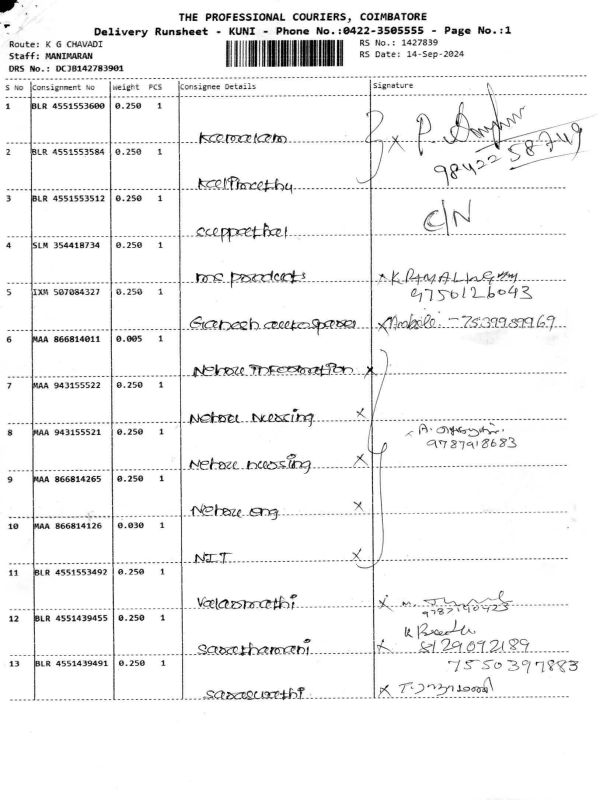 THE PROFESSIONAL COURIERS, COIMBATORE
Delivery Runsheet - KUNI - Phone No.:0422-3505555 - Page No.:1
Route: K G CHAVADI
RS No.: 1427839
Staff: MANIMARAN
RS Date: 14-Sep-2024
DRS No.: DCJB142783901
S No Consignment No Weight PCS Consignee Details Signature
1 BLR 4551553600 0.250 1
Kamalam
P.
98422 58749
2 BLR 4551553584 0.250 1
3 BLR 4551553512 0.250 1
C/N
4 SLM 354418734 0.250 1
mc products
K. RAMALINGam
9750126043
5 IXM 507084327 0.250 1
Ganesh auto spares
7539989969
6 MAA 866814011 0.005 1
Nehru Information
7 MAA 943155522 0.250 1
Nehru nursing
8 MAA 943155521 0.250 1
A.
9787918683
Nehru nursing
9 MAA 866814265 0.250 1
Nehru eng
10 MAA 866814126 0.030 1
NIT
11 BLR 4551553492 0.250 1
Valarmathi
9787140423
12 BLR 4551439455 0.250 1
Sarathamani
8129092189
13 BLR 4551439491 0.250 1
7550397883
Saraswathi